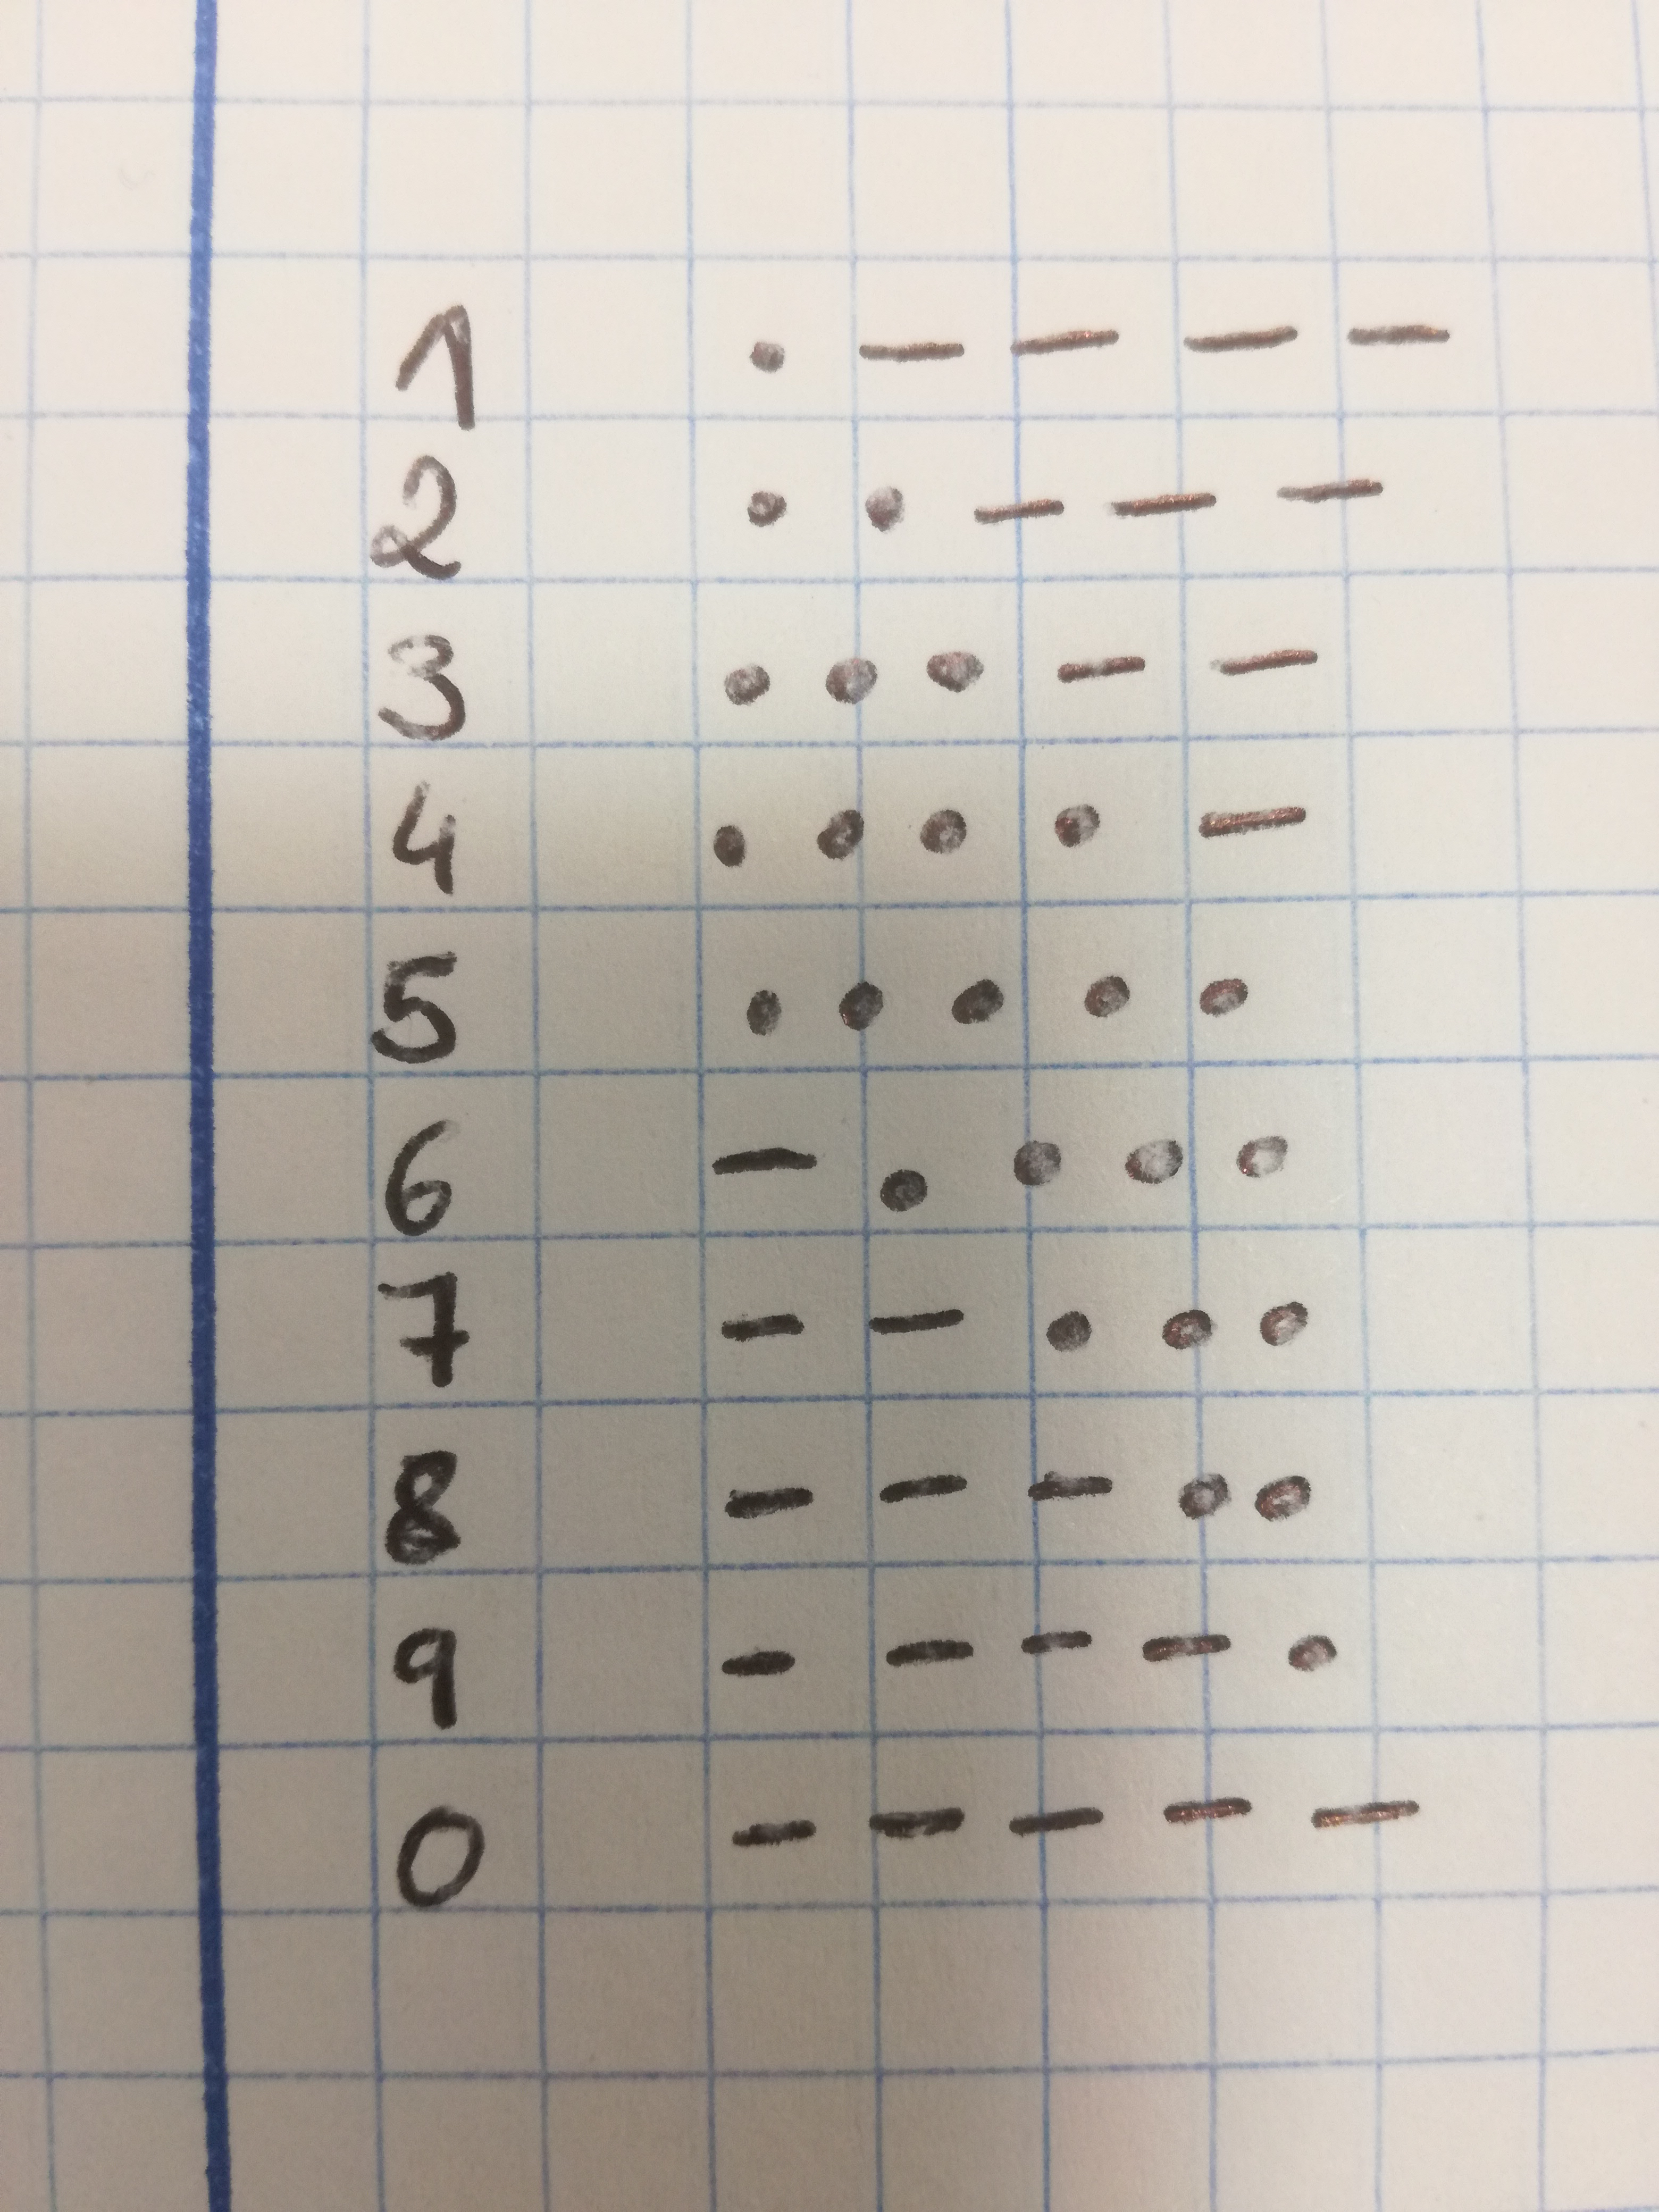 1 . — — — —
2 . . — — —
3 . . . — —
4 . . . . —
5 . . . . .
6 — . . . .
7 — — . . .
8 — — — . .
9 — — — — .
0 — — — — —